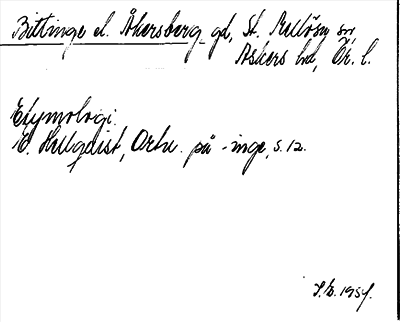 Bittinge el. Åkersberg gd, St. Mellösa sn,
Askers hd, Ör. l.
Etymologi.
E. Hellquist, Ortn. på -inge, s. 12.
1954.